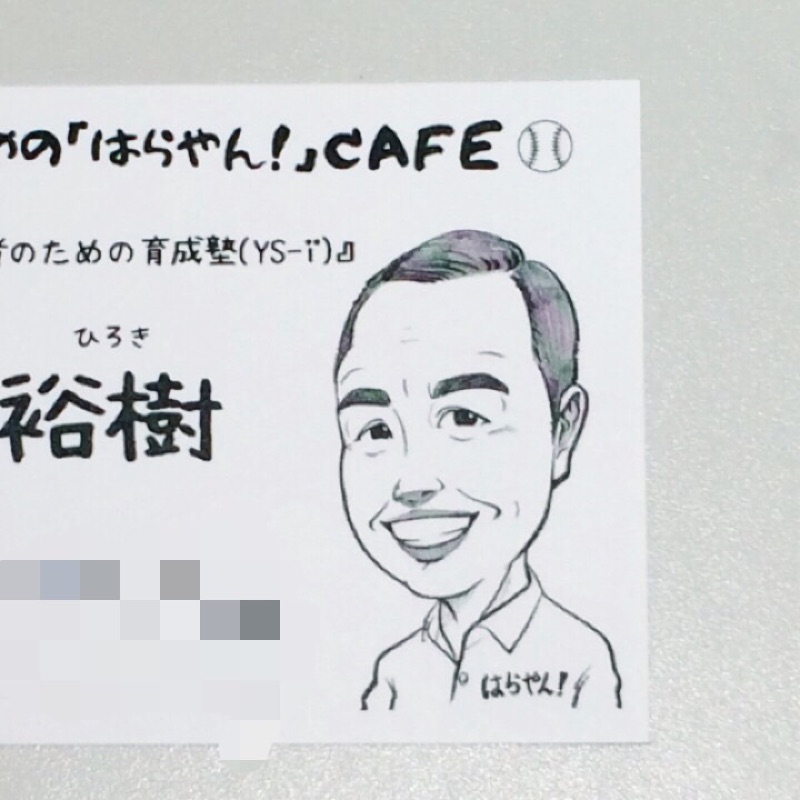 めの「はらやん!」CAFE
者のための育成塾(YS-i)』
ひろき
裕樹
はらやん!